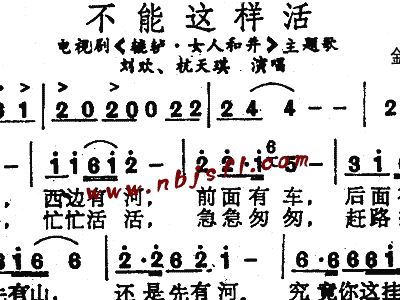 不能这样活
电视剧《辘轳·女人和井》主题歌
刘欢、杭天琪 演唱
金
6 1 | 2 0 2 0 2 0 2 2 | 2 4 4 - - | 2
- | 1 1 6 1 2 - | 2 2 · 1 6 5 - | 3 1 6
， 西边有河， 前面有车， 后面有
， 忙忙活活， 急急匆匆， 赶路
www.nbjsfl.com
1 6 6 6 | 2 · 2 2 6 2 1 - | 6 · 6 6 6 6 1
先有山， 还是先有河。 究竟你这挂